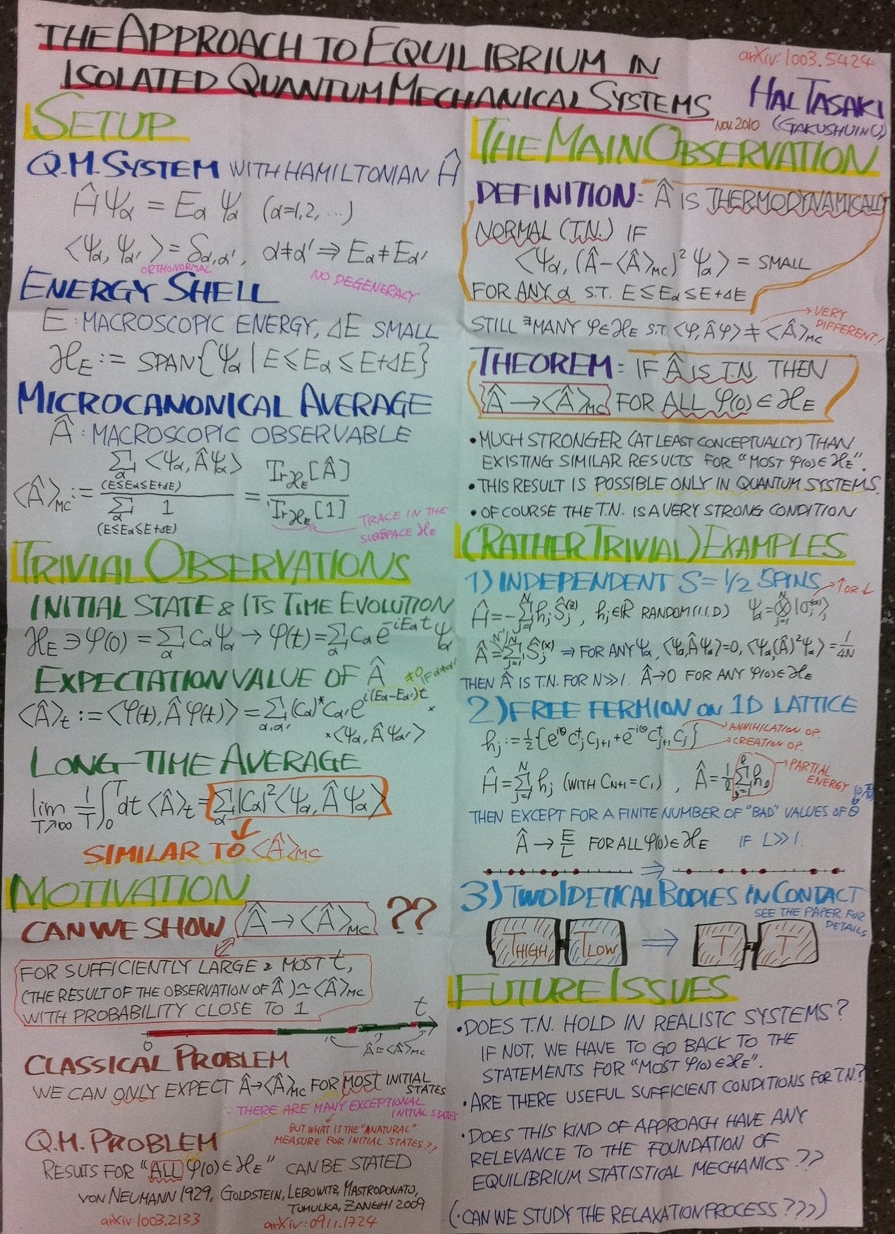 THE APPROACH TO EQUILIBRIUM IN
ISOLATED QUANTUM MECHANICAL SYSTEMS
arXiv:1003.5424
HAL TASAKI
NOV. 2010 (GAKUSHUIN U)
SETUP
Q.M. SYSTEM WITH HAMILTONIAN Ĥ
Ĥ Ψα = Eα Ψα (α=1,2,...)
⟨Ψα, Ψα'⟩ = δα,α', α≠α' ⇒ Eα ≠ Eα'
ORTHONORMAL
NO DEGENERACY
ENERGY SHELL
E: MACROSCOPIC ENERGY, ΔE SMALL
ℋE := SPAN{Ψα | E≤Eα≤E+ΔE}
MICROCANONICAL AVERAGE
Â: MACROSCOPIC OBSERVABLE
⟨Â⟩MC := Σα (E≤Eα≤E+ΔE) ⟨Ψα, ÂΨα⟩ / Σα (E≤Eα≤E+ΔE) 1 = TrℋE[Â] / TrℋE[1]
TRACE IN THE
SUBSPACE ℋE
TRIVIAL OBSERVATIONS
INITIAL STATE & ITS TIME EVOLUTION
ℋE ∋ φ(0) = Σα Cα Ψα → φ(t) = Σα Cα e^{-iEαt} Ψα
EXPECTATION VALUE OF Â
≠0 IF α≠α'
⟨Â⟩t := ⟨φ(t), Âφ(t)⟩ = Σα,α' (Cα)* Cα' e^{i(Eα-Eα')t} ×
×⟨Ψα, ÂΨα'⟩
LONG-TIME AVERAGE
lim T↗∞ 1/T ∫₀ᵀ dt ⟨Â⟩t = Σα |Cα|² ⟨Ψα, ÂΨα⟩
SIMILAR TO ⟨Â⟩MC
MOTIVATION
CAN WE SHOW Â → ⟨Â⟩MC ??
FOR SUFFICIENTLY LARGE & MOST t,
(THE RESULT OF THE OBSERVATION OF Â) ≃ ⟨Â⟩MC
WITH PROBABILITY CLOSE TO 1
0 t
Â≃⟨Â⟩MC
CLASSICAL PROBLEM
WE CAN ONLY EXPECT Â→⟨Â⟩MC FOR MOST INITIAL
STATES
THERE ARE MANY EXCEPTIONAL
INITIAL STATES
BUT WHAT IS THE "NATURAL"
MEASURE FOR INITIAL STATES??
Q.M. PROBLEM
RESULTS FOR "ALL φ(0)∈ℋE" CAN BE STATED
VON NEUMANN 1929, GOLDSTEIN, LEBOWITZ, MASTRODONATO,
TUMULKA, ZANGHI 2009
arXiv:1003.2133 arXiv:0911.1724
THE MAIN OBSERVATION
DEFINITION: Â IS THERMODYNAMICALLY
NORMAL (T.N.) IF
⟨Ψα, (Â-⟨Â⟩MC)² Ψα⟩ = SMALL
FOR ANY α S.T. E≤Eα≤E+ΔE
STILL ∃MANY φ∈ℋE S.T. ⟨φ, Âφ⟩ ≠ ⟨Â⟩MC
VERY
DIFFERENT!
THEOREM: IF Â IS T.N. THEN
Â → ⟨Â⟩MC FOR ALL φ(0) ∈ ℋE
• MUCH STRONGER (AT LEAST CONCEPTUALLY) THAN
EXISTING SIMILAR RESULTS FOR "MOST φ(0)∈ℋE".
• THIS RESULT IS POSSIBLE ONLY IN QUANTUM SYSTEMS.
• OF COURSE THE T.N. IS A VERY STRONG CONDITION
(RATHER TRIVIAL) EXAMPLES
1) INDEPENDENT S=1/2 SPINS
↑ OR ↓
Ĥ = -Σ_{j=1}^{N} hj Ŝj^(z), hj∈ℝ RANDOM (I.I.D) Ψα = ⊗_{j=1}^{N} |σj^(α)⟩
Â = 1/N Σ_{j=1}^{N} Ŝj^(x) ⇒ FOR ANY Ψα, ⟨Ψα, ÂΨα⟩=0, ⟨Ψα, (Â)²Ψα⟩ = 1/4N
THEN Â IS T.N. FOR N≫1. Â→0 FOR ANY φ(0)∈ℋE
2) FREE FERMION ON 1D LATTICE
hj := 1/2 {e^{iθ} Cj† Cj+1 + e^{-iθ} Cj+1† Cj}
ANNIHILATION OP.
CREATION OP.
Ĥ = Σ_{j=1}^{N} hj (WITH CN+1 = C1), Â = 1/ℓ Σ_{j=1}^{ℓ} hj
PARTIAL
ENERGY
THEN EXCEPT FOR A FINITE NUMBER OF "BAD" VALUES OF θ
Â → E/L FOR ALL φ(0)∈ℋE IF L≫1.
⇒
3) TWO IDETICAL BODIES IN CONTACT
SEE THE PAPER FOR
DETAILS
THIGH TLOW ⇒ T T
FUTURE ISSUES
• DOES T.N. HOLD IN REALISTC SYSTEMS?
IF NOT, WE HAVE TO GO BACK TO THE
STATEMENTS FOR "MOST φ(0)∈ℋE".
• ARE THERE USEFUL SUFFICIENT CONDITIONS FOR T.N.?
• DOES THIS KIND OF APPROACH HAVE ANY
RELEVANCE TO THE FOUNDATION OF
EQUILIBRIUM STATISTICAL MECHANICS ??
(• CAN WE STUDY THE RELAXATION PROCESS ???)